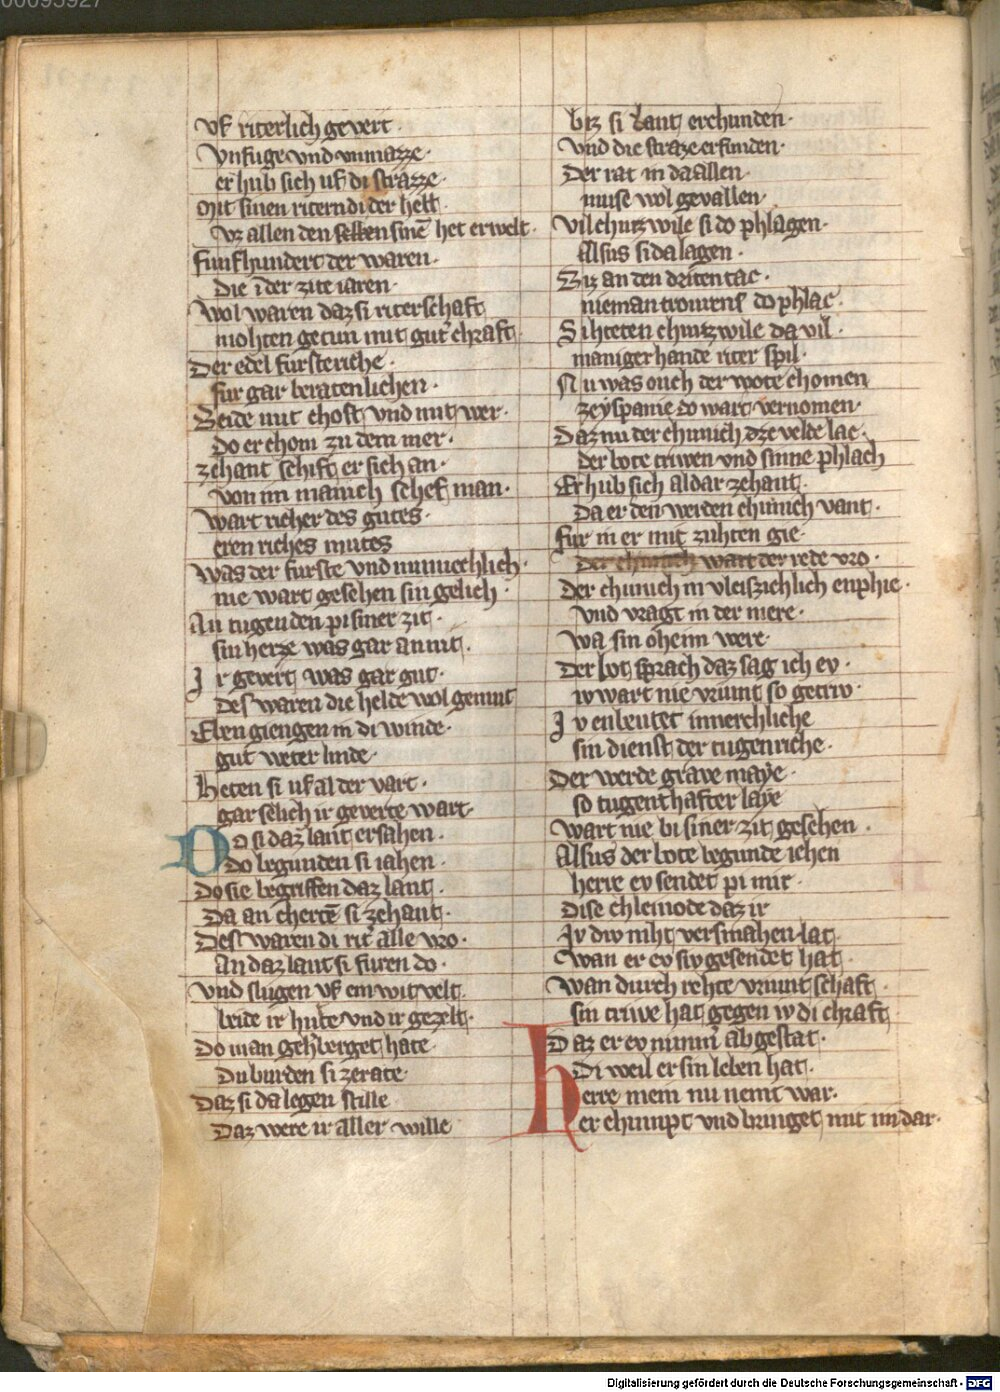 00095927
vf riterlich gevert·
Vnfuge vnd vnmazze·
er hub sich uf di strazze·
Mit sinen ritern di der helt
vz allen den selben sinē het erwelt·
funfhundert der waren·
Die ī der zite iaren·
Wol waren daz si riterschaft
mohten getun mit gut͛ chraft·
Der edel furste riche·
fur gar beratenlichen·
Beide mit chost vnd mit wer·
Do er chom zu dem mer·
zehant schift er sich an·
von im manich schef man·
Wart richer des gutes·
eren riches mutes
Was der furste vnd minnechlich·
nie wart gesehen sin gelich·
An tugenden pi siner zit·
sin herze was gar an nit·
Ir gevert was gar gut·
Des waren die helde wol gemut
Eben giengen in di winde·
gut weter linde·
Heten si uf al der vart·
gar selich ir geverte wart·
Do si daz lant ersahen·
Do begunden si iahen·
Do sie begriffen daz lant·
Da an chertē si zehant·
Des waren di rit͛ alle vro·
An daz lant si furen do·
vnd slugen vf ein wit velt·
beide ir hute vnd ir gezelt·
Do man geh͛berget hate·
Du burden si ze rate·
Daz si da legen stille
Daz were ir aller wille
biz si lant erchunden·
vnd die straze erfunden·
Der rat in da allen·
muse wol gevallen·
Vil churz wile si do phlagen·
Alsus si da lagen·
Biz an den driten tac·
nieman trourens do phlac·
Si heten churzwile da vil·
maniger hande riter spil·
Nu was ouch der bote chomen
ze yspanie do wart vernomen·
Daz nu der chunich dze velde lac·
der bote triwen vnd sinne phlach
Er hub sich aldar zehant·
Da er den werden chunich vant·
fur in er mit zuhten gie·
Der chunich wart der rede vro·
Der chunich in vleiszichlich enphie·
vnd vragt in der mere·
wa sin oheim were·
Der bot sprach daz sag ich ev·
iv wart nie vriunt so getriv·
Iv enbeutet innerchliche
sin dienst der tugenriche·
Der werde grave maye·
so tugenthafter laye
Wart nie bi siner zit gesehen·
Alsus der bote begunde iehen
herre ev sendet pi mir·
Dise chleinode daz ir
Ir div niht versmahen lat·
wan er ev siv gesendet hat·
wan durch rehte vriuntschaft·
sin triwe hat gegen iv di chraft·
Daz er ev nimm͛ abgestat·
Di weil er sin leben hat·
herre mein nu nemt war·
er chumpt vnd bringet mit im dar·
Digitalisierung gefördert durch die Deutsche Forschungsgemeinschaft - DFG